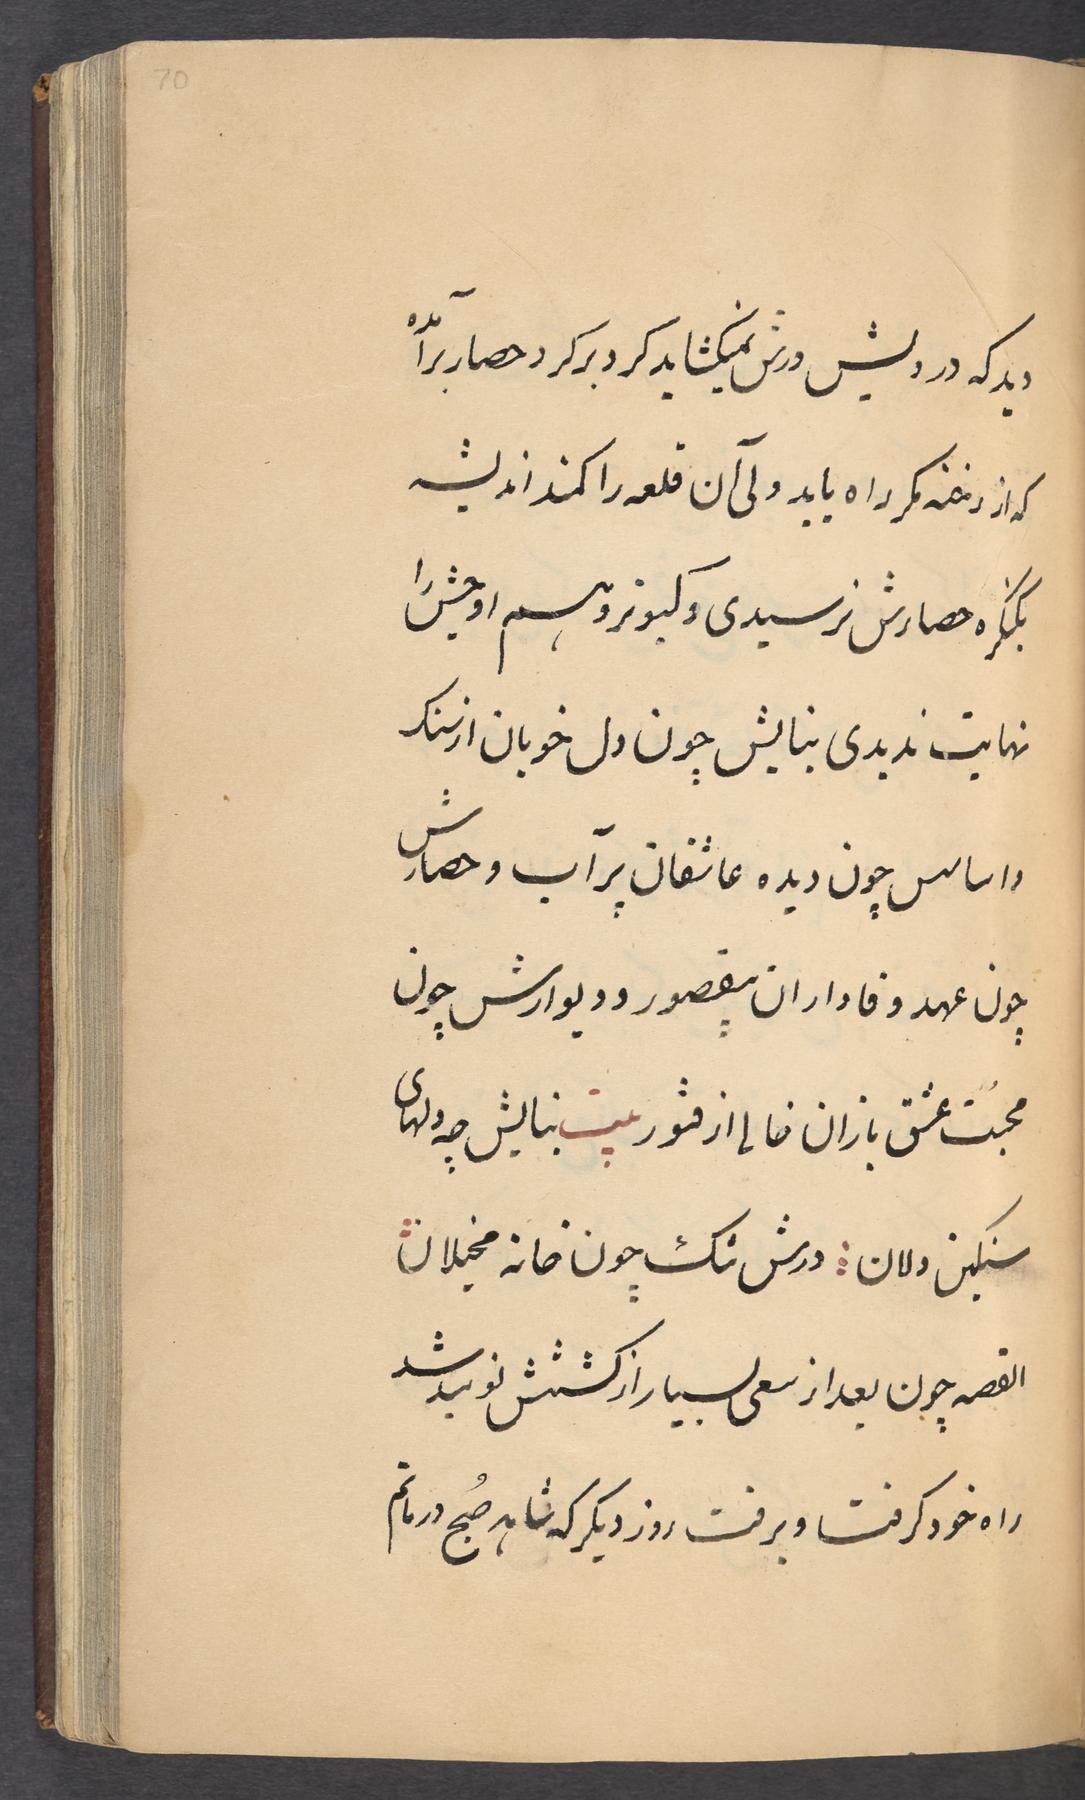 70
دید که درویش درش نمیکشاید کرد برکرد حصار برآمده
که از رخنه مکر راه یابد ولی آن قلعه را کمند اندیشه
بکنکره حصارش نرسیدی و کبوتر وهم اوجش را
نهایت ندیدی بنایش چون دل خوبان از سنک
و اساس چون دیده عاشقان پر آب و حصارش
چون عهد وفاداران بیقصور و دیوارش چون
محبت عشق بازان خالی از فتور بیت بنایش چه دلهای
سنکین دلان ؛ درش تنک چون خانه مخیلان ؛
القصه چون بعد از سعی بسیار از کشتش نومید شد
راه خود کرفت و برفت روز دیکر که شاهد صُبح در ماتم